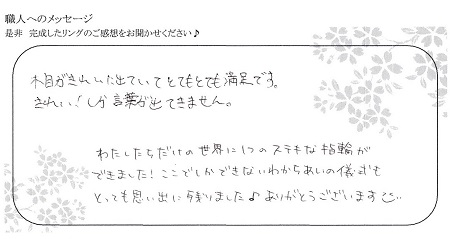 職人へのメッセージ
是非 完成したリングのご感想をお聞かせください♪
木目がきれいに出ていてとてもとても満足です。
きれい！しか言葉が出てきません。
わたしたちだけの世界に1つのステキな指輪が
できました！ここでしかできないわかちあいの儀式も
とっても思い出に残りました♪ ありがとうございます